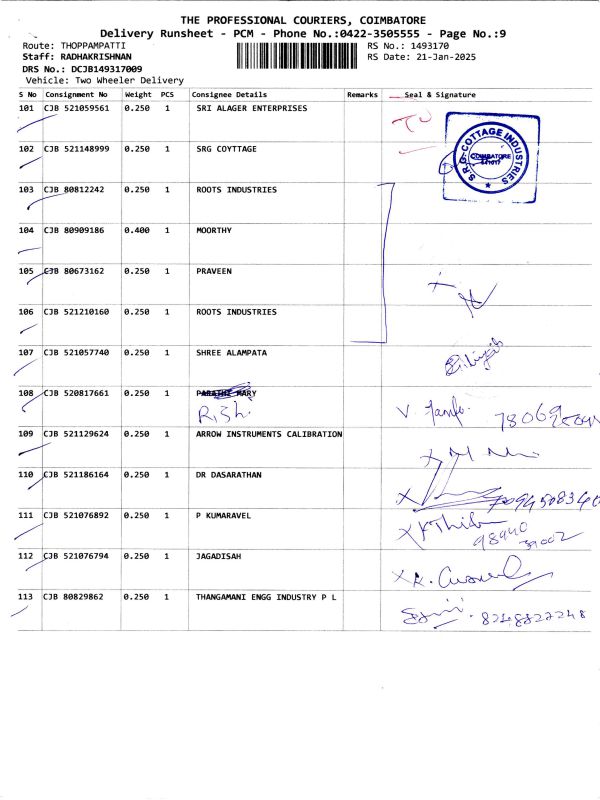 THE PROFESSIONAL COURIERS, COIMBATORE
Delivery Runsheet - PCM - Phone No.:0422-3505555 - Page No.:9
Route: THOPPAMPATTI RS No.: 1493170
Staff: RADHAKRISHNAN RS Date: 21-Jan-2025
DRS No.: DCJB149317009
Vehicle: Two Wheeler Delivery
S No Consignment No Weight PCS Consignee Details Remarks Seal & Signature
101 CJB 521059561 0.250 1 SRI ALAGER ENTERPRISES
S.R.G COTTAGE INDUSTRIES
COIMBATORE
641017
102 CJB 521148999 0.250 1 SRG COYTTAGE
103 CJB 80812242 0.250 1 ROOTS INDUSTRIES
104 CJB 80909186 0.400 1 MOORTHY
105 CJB 80673162 0.250 1 PRAVEEN
106 CJB 521210160 0.250 1 ROOTS INDUSTRIES
107 CJB 521057740 0.250 1 SHREE ALAMPATA
108 CJB 520817661 0.250 1 MARY
109 CJB 521129624 0.250 1 ARROW INSTRUMENTS CALIBRATION
110 CJB 521186164 0.250 1 DR DASARATHAN
111 CJB 521076892 0.250 1 P KUMARAVEL
98940
112 CJB 521076794 0.250 1 JAGADISAH
113 CJB 80829862 0.250 1 THANGAMANI ENGG INDUSTRY P L